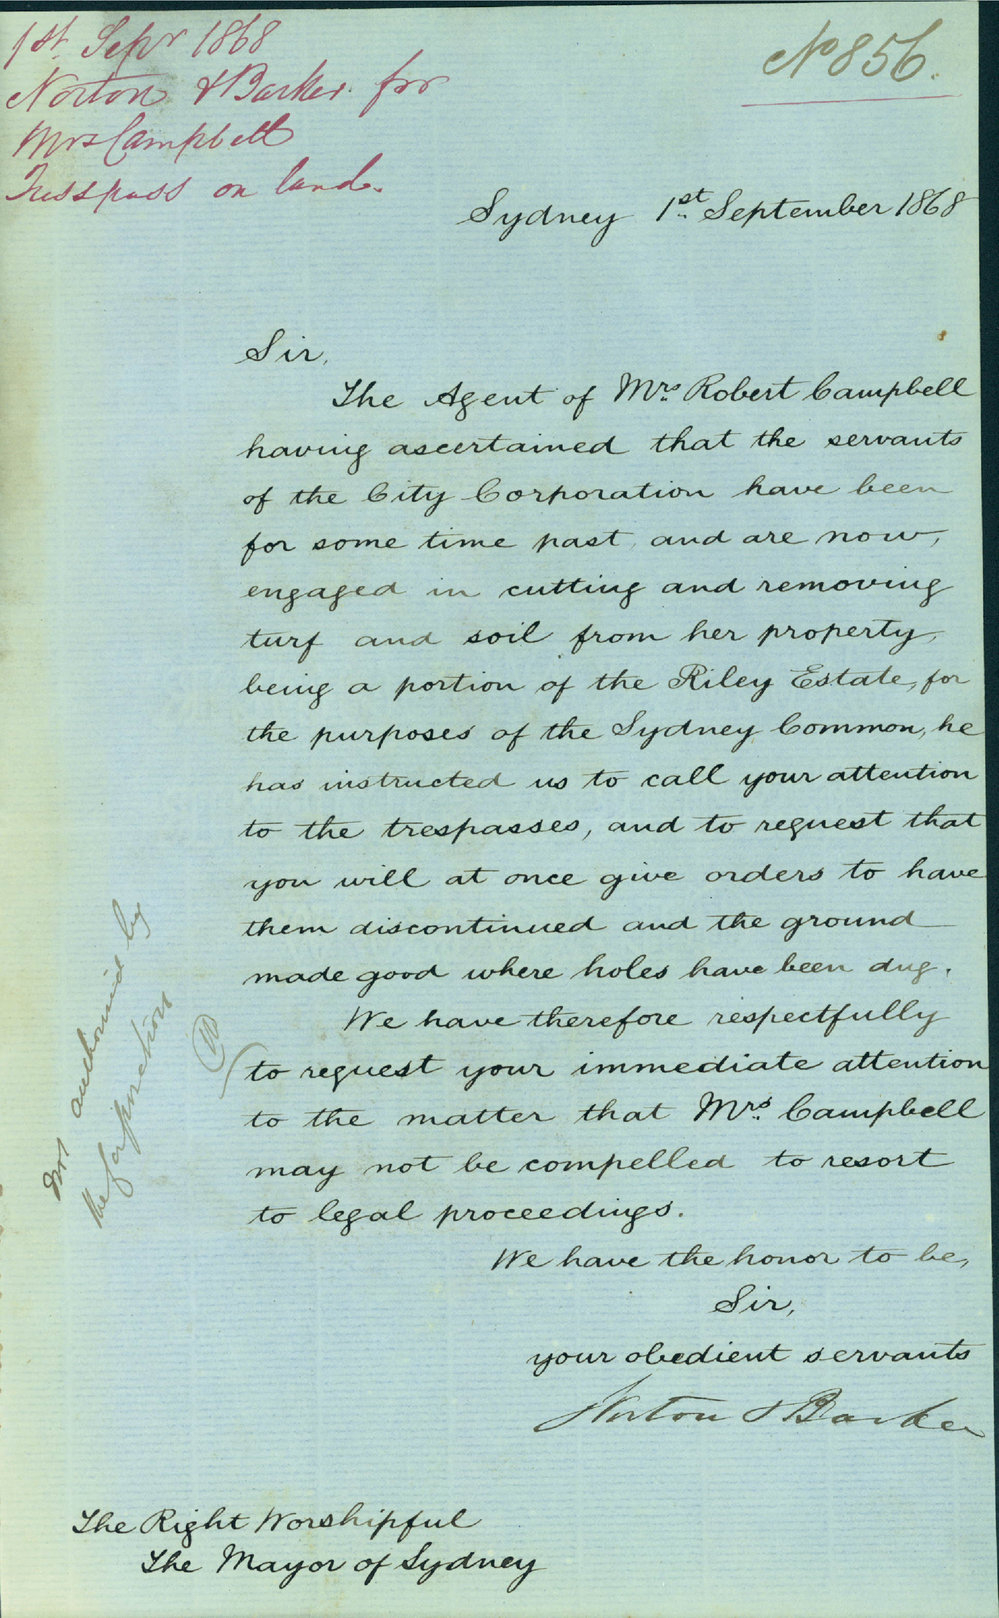 1st. Sepr 1868
Norton & Barker for
Mrs Campbell
Tresspass on land.
No 856.
Sydney 1st September 1868
Sir,
The Agent of Mrs. Robert Campbell
having ascertained that the servants
of the City Corporation have been
for some time past, and are now,
engaged in cutting and removing
turf and soil from her property,
being a portion of the Riley Estate, for
the purposes of the Sydney Common, he
has instructed us to call your attention
to the trespasses, and to request that
you will at once give orders to have
them discontinued and the ground
made good where holes have been dug.
We have therefore respectfully
to request your immediate attention
to the matter that Mrs. Campbell
may not be compelled to resort
to legal proceedings.
We have the honor to be,
Sir,
your obedient servants
Norton & Barker
The Right Worshipful
The Mayor of Sydney
by
the